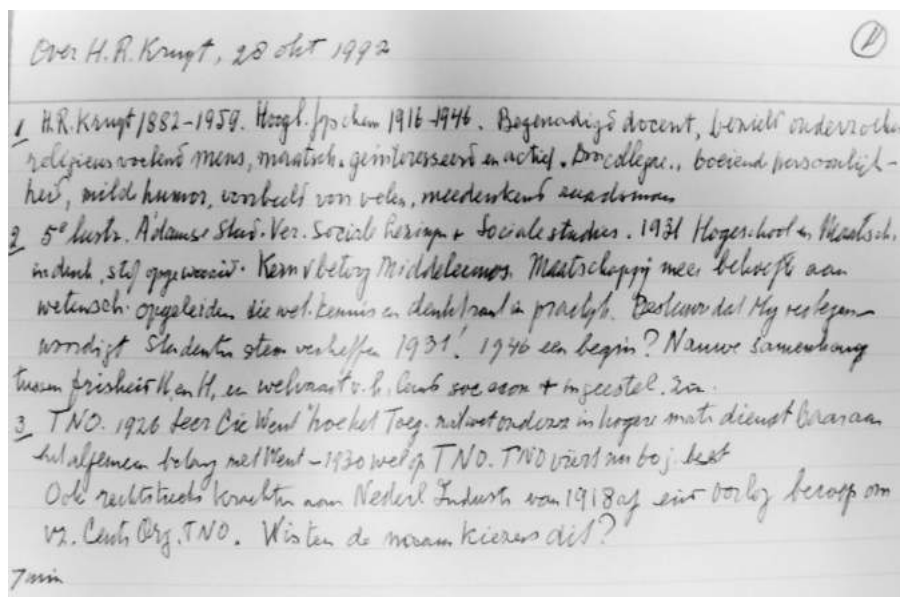 Over H.R. Kruyt, 28 okt 1992
1
1 H.R. Kruyt 1882-1959. Hoogl. fys chem 1916-1946. Begenadigd docent, bezield onderzoeker
religieus zoekend mens, maatsch. geinteresseerd en actief. boeiend persoonlijk-
heid, milde humor, voorbeeld voor velen, meedenkend
2 5e lustr. A'damse Stud. Ver. Sociale Lezingen + Sociale studies. 1931 Hogeschool en Maatsch.
indenk, stof opgewaaid. Kern v betoog Maatschappij meer behoefte aan
wetensch. opgeleiden die wet. kennis en denktrant in praktijk. dat My vertegen-
woordigt Studenten stem verheffen 1931! 1946 een begin? Nauwe samenhang
tussen frisheid H en H, en welvaart v.h. land soc econ + in geestel. zin.
3 TNO. 1926 Cie Went Toeg. natwet onderz in hogere mate dienstbaar aan
het algemeen belang met Went - 1930 wet op TNO. TNO viert nu 60 j.
Ook rechtstreeks krachten aan Nederl Industr van 1918 af eind oorlog beroep om
vz. Centr Org. TNO. Wisten de kiezers dit?
7 min